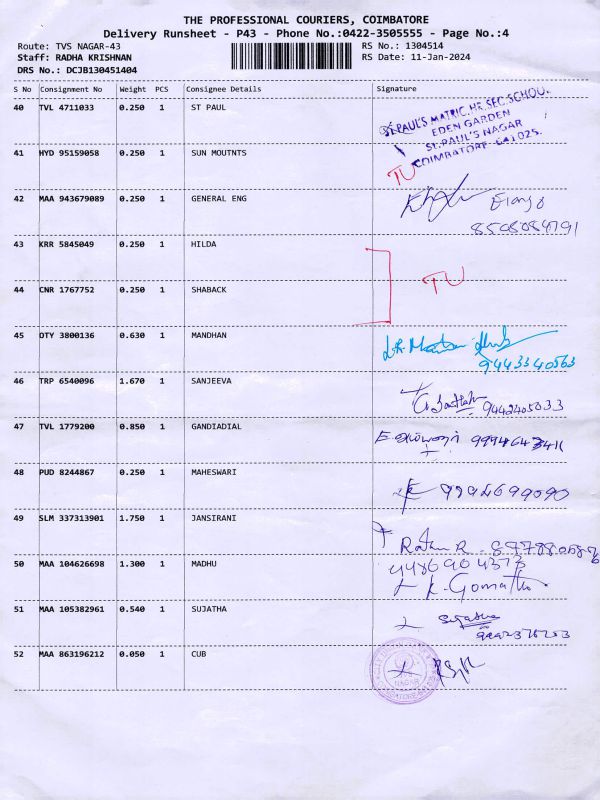 THE PROFESSIONAL COURIERS, COIMBATORE
Delivery Runsheet - P43 - Phone No.:0422-3505555 - Page No.:4
Route: TVS NAGAR-43 RS No.: 1304514
Staff: RADHA KRISHNAN RS Date: 11-Jan-2024
DRS No.: DCJB130451404
S No Consignment No Weight PCS Consignee Details Signature
40 TVL 4711033 0.250 1 ST PAUL
ST.PAUL'S MATRIC.HR.SEC.SCHOOL.
EDEN GARDEN
ST.PAUL'S NAGAR
COIMBATORE-641025.
41 HYD 95159058 0.250 1 SUN MOUTNTS TU
42 MAA 943679089 0.250 1 GENERAL ENG
43 KRR 5845049 0.250 1 HILDA
TU
44 CNR 1767752 0.250 1 SHABACK
45 OTY 3800136 0.630 1 MANDHAN
9443340563
46 TRP 6540096 1.670 1 SANJEEVA
9442405033
47 TVL 1779200 0.850 1 GANDIADIAL
48 PUD 8244867 0.250 1 MAHESWARI
9994699090
49 SLM 337313901 1.750 1 JANSIRANI
50 MAA 104626698 1.300 1 MADHU
K. Gomathi
51 MAA 105382961 0.540 1 SUJATHA
Sujatha
52 MAA 863196212 0.050 1 CUB
NAGAR